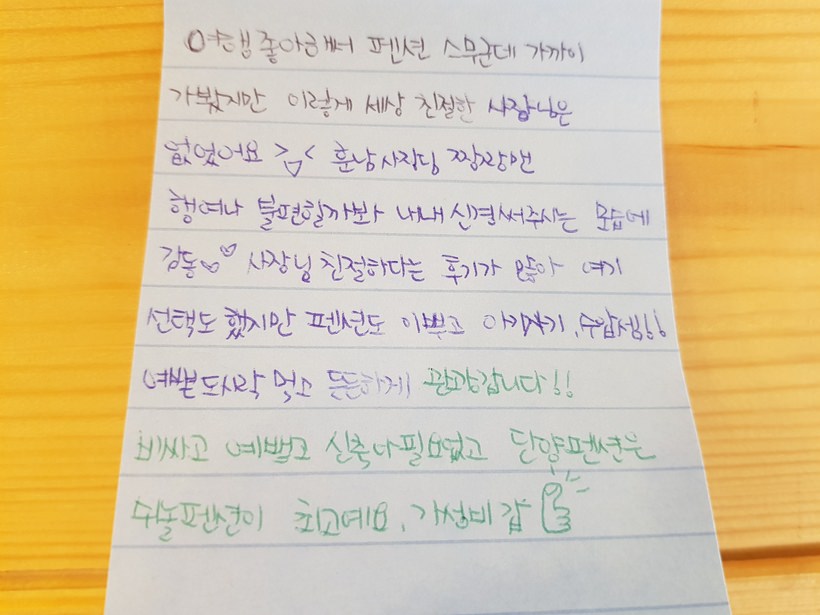 여행 좋아해서 펜션 스무군데 가까이
가봤지만 이렇게 세상 친절한 사장님은
없었어요 >_< 훈남사장님 짱짱맨
행여나 불편할까봐 내내 신경써주시는 모습에
감동♡♡ 사장님 친절하다는 후기가 많아 여기
선택도 했지만 펜션도 이쁘고 아기자기, 수압쎔!!
예쁜 도시락 먹고 든든하게 관광갑니다!!
비싸고 예쁘고 신축 다 필요없고 단양펜션은
쉬놀펜션이 최고예요. 가성비 갑